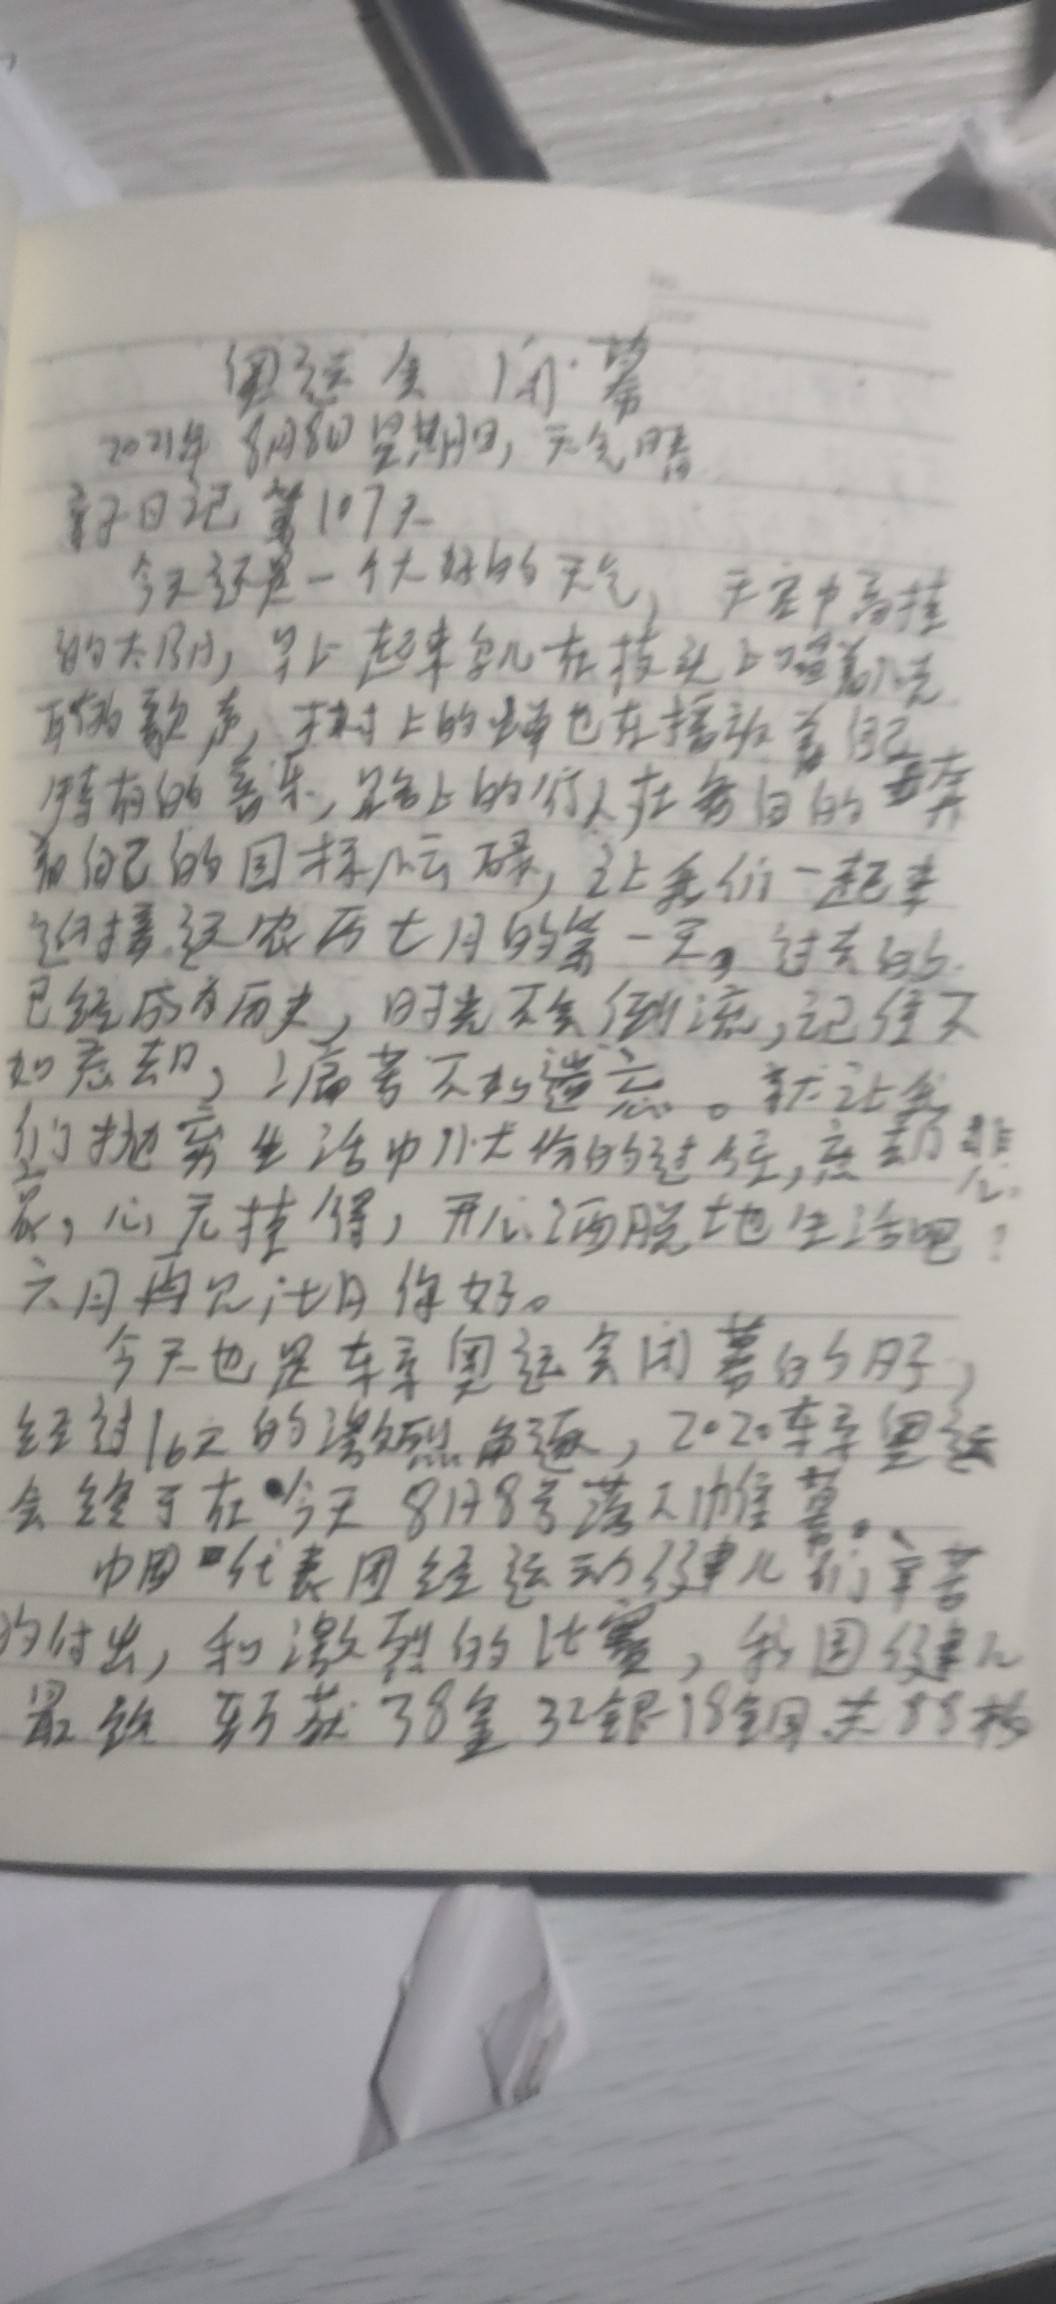 奥运会闭幕
2021年8月8日星期日,天气晴
亲子日记第107天
今天还是一个大好的天气,天空中高挂
的太阳,早上起来鸟儿在枝头上唱着
耳的歌声,树上的蝉也在播放着自己
特有的音乐,路上的行人在每日的奔
着自己的目标忙碌,让我们一起来
迎接这农历七月的第一天,过去的
已经成为历史,时光不会倒流,记住不
如忘却,不如遗忘。就让我
们抛弃生活中的过往,忘却悲
哀,心无挂碍,开心洒脱地生活吧!
六月再见,七月你好。
今天也是东京奥运会闭幕的日子,
经过16天的激烈角逐,2020东京奥运
会终于在今天8月8号落下帷幕。
中国代表团经运动健儿们辛苦
的付出,和激烈的比赛,我国健儿
最终斩获38金32银18铜共88枚